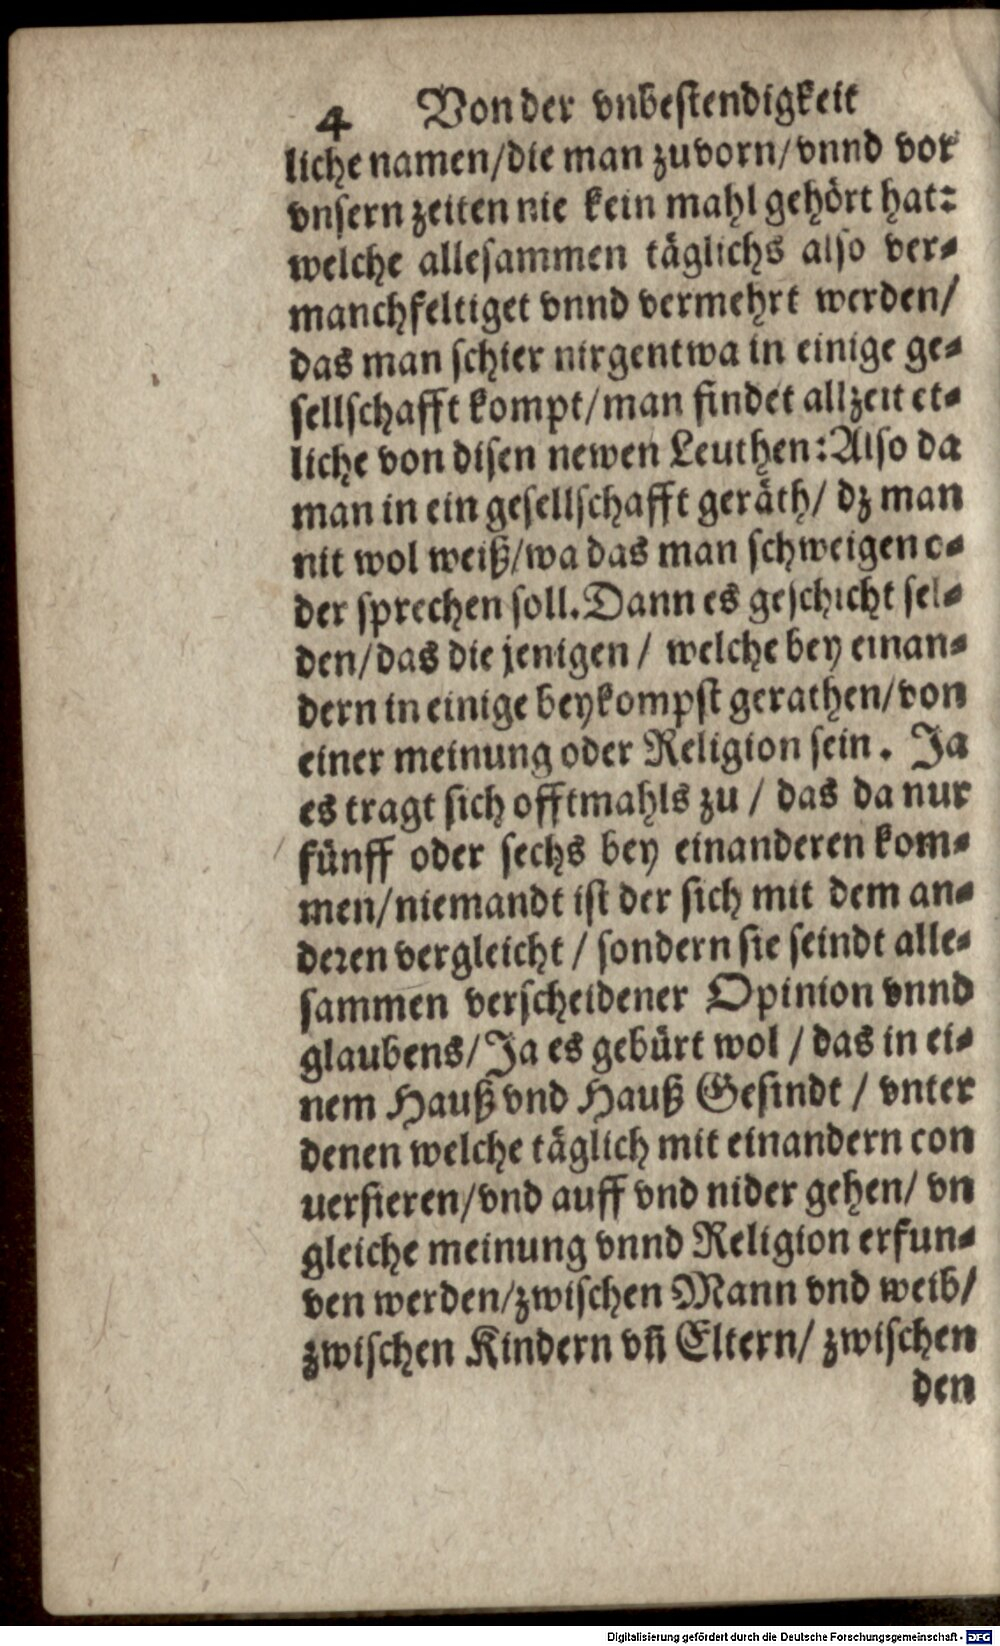 4 Von der vnbestendigkeit
liche namen/die man zuvorn/vnnd vor
vnsern zeiten nie kein mahl gehört hat:
welche allesammen täglichs also ver-
manchfeltiget vnnd vermehrt werden/
das man schier nirgentwa in einige ge-
sellschafft kompt/man findet allzeit et-
liche von disen newen Leuthen: Also da
man in ein gesellschafft geräth/ dz man
nit wol weiß/wa das man schweigen o-
der sprechen soll. Dann es geschicht sel-
den/das die jenigen / welche bey einan-
dern in einige beykompst gerathen/von
einer meinung oder Religion sein. Ja
es tragt sich offtmahls zu / das da nur
fünff oder sechs bey einanderen kom-
men/niemandt ist der sich mit dem an-
deren vergleicht / sondern sie seindt alle-
sammen verscheidener Opinion vnnd
glaubens/Ja es gebürt wol / das in ei-
nem Hauß vnd Hauß Gesindt / vnter
denen welche täglich mit einandern con
uersieren/vnd auff vnd nider gehen/ vn
gleiche meinung vnnd Religion erfun-
den werden/zwischen Mann vnd weib/
zwischen Kindern vñ Eltern/ zwischen
den
Digitalisierung gefördert durch die Deutsche Forschungsgemeinschaft - DFG